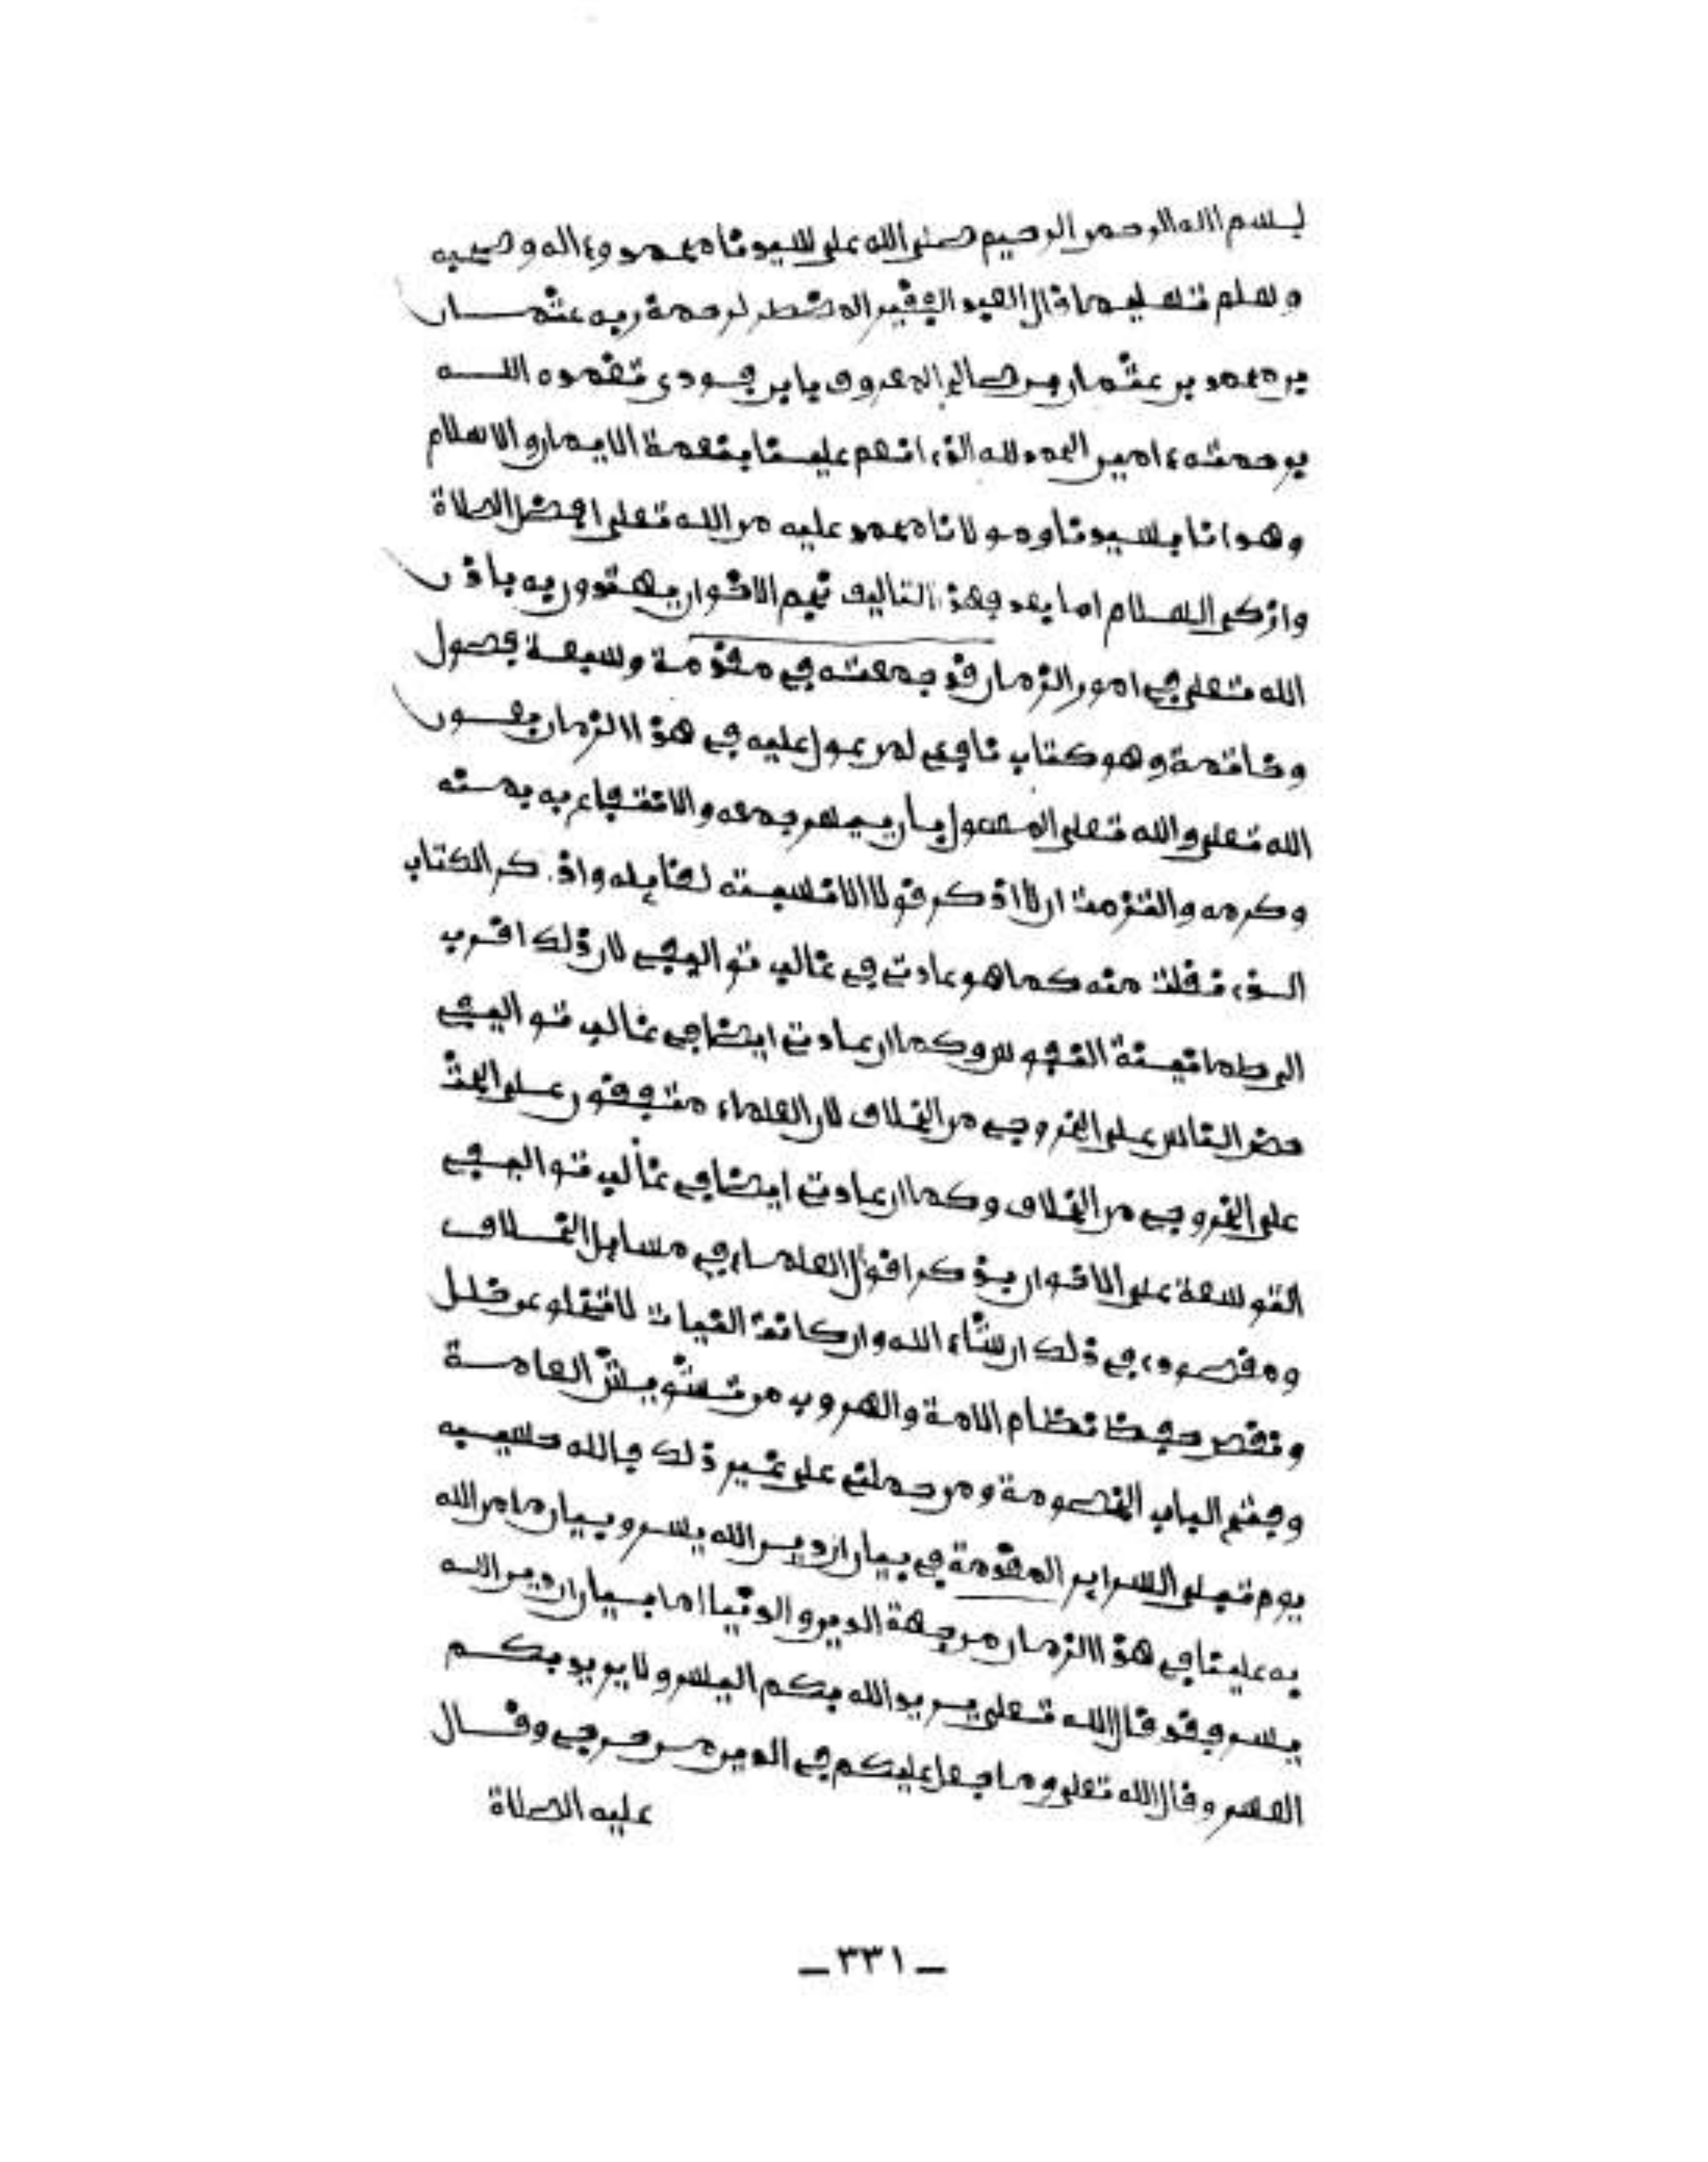 بسم الله الرحمن الرحيم صلى الله على سيدنا محمد وءاله وصحبه
وسلم تسليما قال العبد الفقير المضطر لرحمة ربه عثمان
بن محمد بن عثمان بن صالح المعروف بابن فودي تغمده الله
برحمته ءامين الحمد لله الذي انعم علينا بنعمة الايمان والاسلام
وهدانا بسيدنا ومولانا محمد عليه من الله تعلى افضل الصلاة
وازكى السلام اما بعد فهذا التاليف نجم الاخوان يهتدون به باذن
الله تعلى في امور الزمان قد جمعته في مقدمة وسبعة فصول
وخاتمة وهو كتاب نافع لمن يعول عليه في هذا الزمان بعون
الله تعلى والله تعلى المسول بان ييسر جمعه والانتفاع به بمنه
وكرمه والتزمت ان لا اذكر قولا الا نسبته لقايله واذكر الكتاب
الذي نقلت منه كما هو عادتي في غالب تواليفي لان ذلك اقرب
الى طمانينة النفوس وكما ان عادتي ايضا في غالب تواليفي
حض الناس على الخروج من الخلاف لان العلماء متفقون على الحث
على الخروج من الخلاف وكما ان عادتي ايضا في غالب تواليفي
التوسعة على الاخوان بذكر اقوال العلماء في مسايل الخلاف
ومقصودي في ذلك ان شاء الله وان كانت النيات لا تخلو عن خلل
ونقص حفظ نظام الامة والهروب من تشويش العامة
وفتح الباب الخصومة ومن حملني على غير ذلك فالله حسيبه
يوم تبلى السراير المقدمة في بيان ان دين الله يسر وبيان ما من الله
به علينا في هذا الزمان من جهة الدين والدنيا اما بيان ان دين الله
يسر فقد قال الله تعلى يريد الله بكم اليسر ولا يريد بكم
العسر وقال الله تعلى وما جعل عليكم في الدين من حرج وقال
عليه الصلاة
ـ ٣٣١ ـ